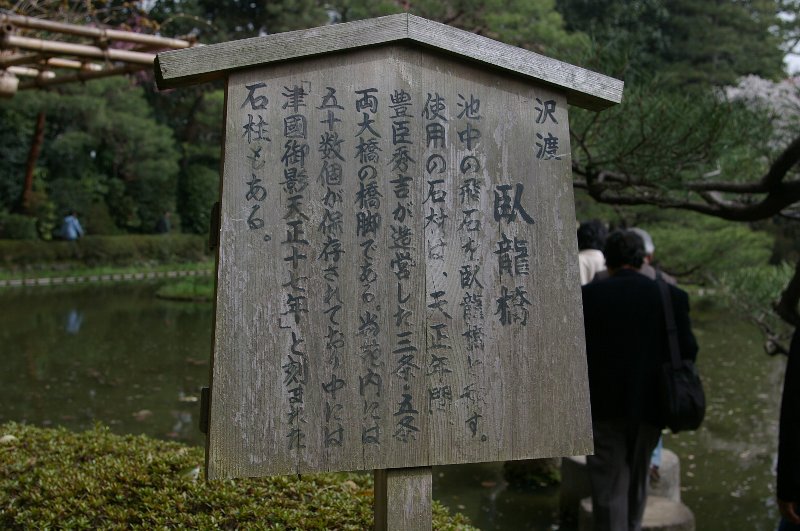 沢渡
臥龍橋
池中の飛石を臥龍橋と称す。
使用の石材は、天正年間
豊臣秀吉が造営した三条・五条
両大橋の橋脚である。当苑内には
五十数個が保存されており中には
「津国御影天正十七年」と刻まれた
石柱もある。